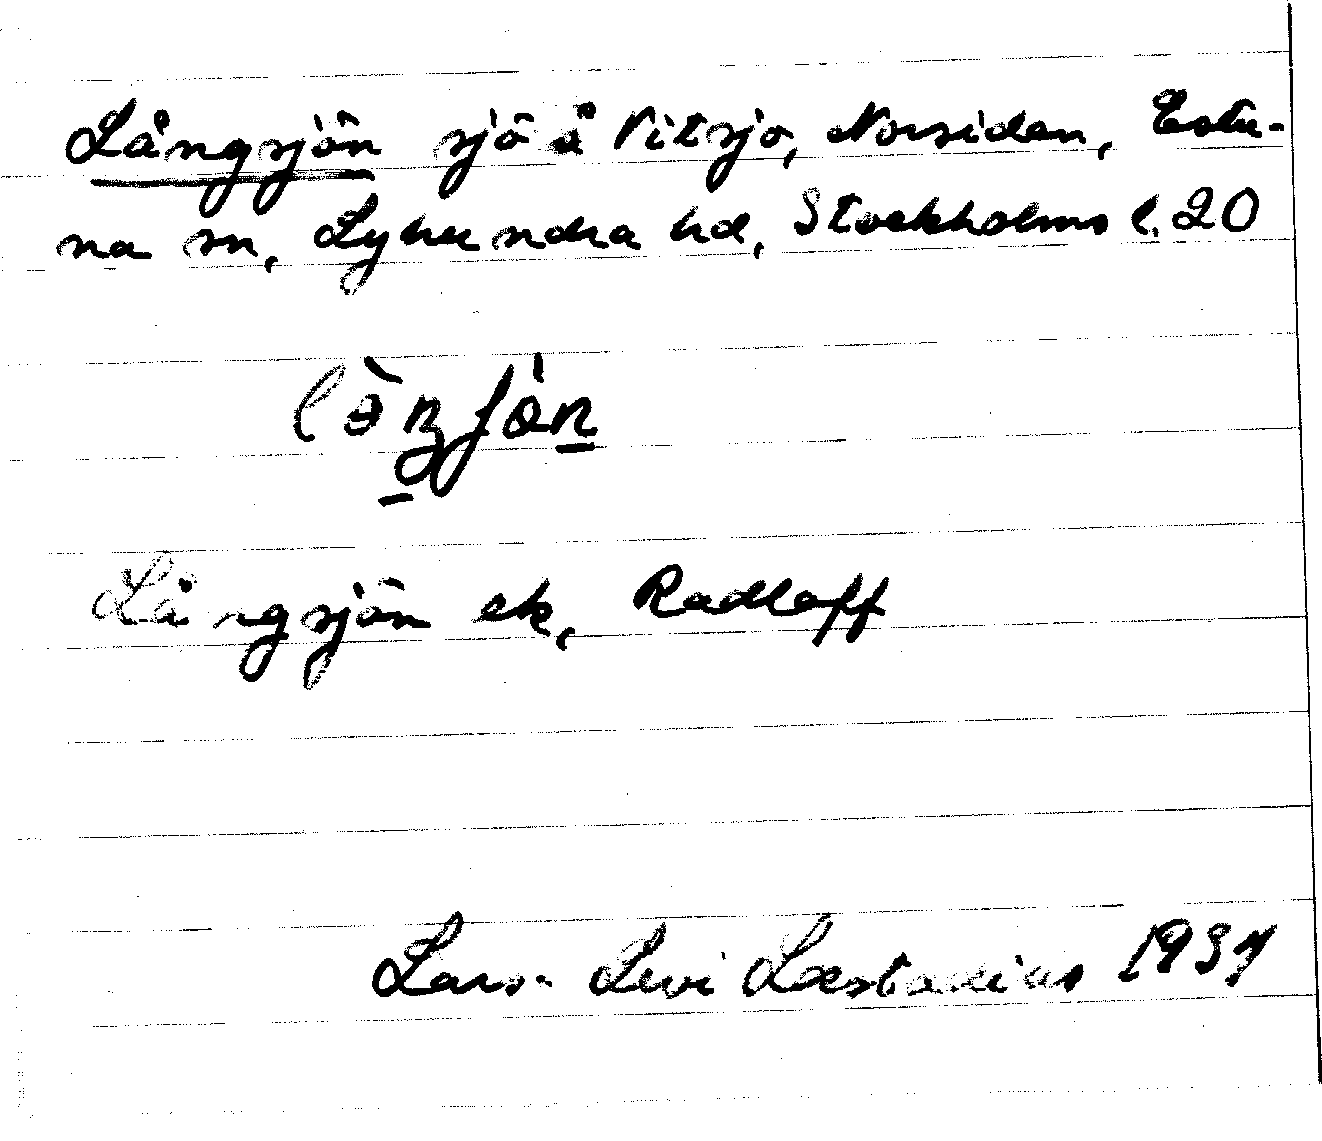 Långsjön sjö å Vitsjö, Norsidan, Estu-
na sn, Lyhundra hd, Stockholms l. 20
Långsjön ek, Radloff
Lars-Levi Læstadius 1937